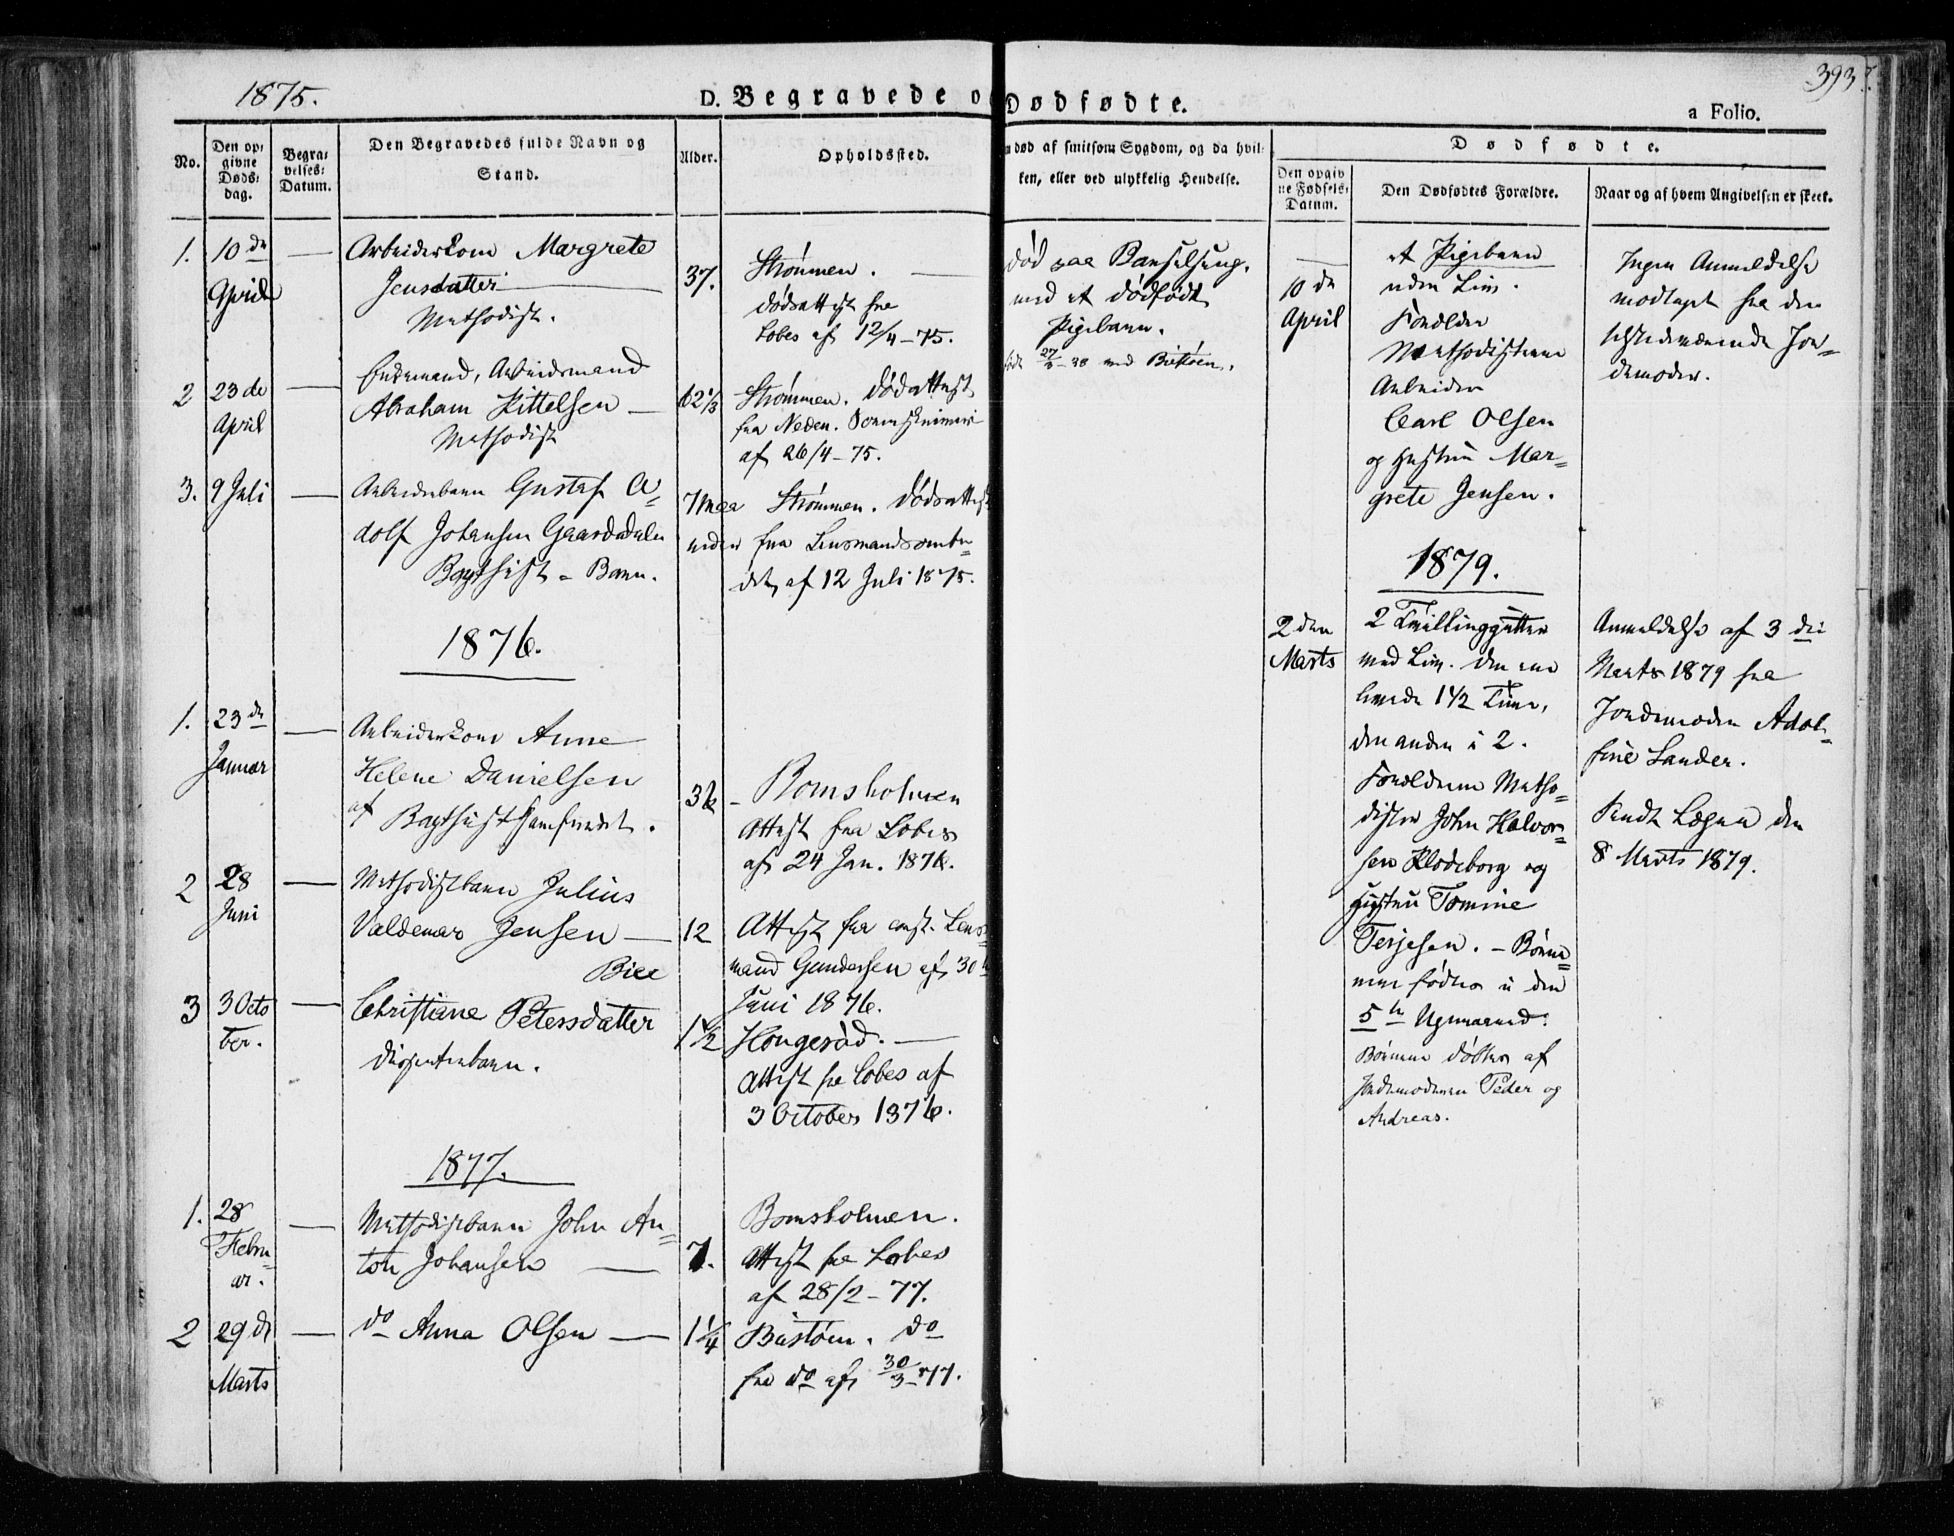 1875.
D. Begravede o
Dødfødte.
393
a Folio.
No.
Den op-
givne
Døds-
dag.
Begra-
velses-
Datum.
Den Begravedes fulde Navn og
Stand.
Alder.
Opholdssted.
død af smitsom Sygdom, og da hvil-
ken, eller ved ulykkelig Hendelse.
Dødfødte.
Den opgiv
ne Fødsels-
Datum.
Den Dødfødtes Forældre.
Naar og af hvem Angivelsen er skeet.
1. 10de
April
Arbeiderkone Margrete
Jensdatter
Methodist.
37.
Strømmen.
Dødsattest fra
Lobes af 12/4-75.
død paa Barselseng,
med et dødfødt
Pigebarn.
2 23de
April
Enkemand, Arbeidsmand
Abraham Kittelsen
Methodist
62 1/3
Strømmen. Dødsattest
fra Neden. Sorenskriveri
af 26/4-75.
3. 9 Juli
Arbeiderbarn Gustaf A-
dolf Johansen Gaardsdalen
Baptist-Barn.
7 maa
neder
Strømmen. Dødsattest
fra Lensmandsombu-
det af 12 Juli 1875.
1876.
1. 23de
Januar
Arbeiderkone Anne
Helene Danielsen
af Baptistsamfundet.
36
Bomsholmen
Attest fra Lobes
af 24 Jan. 1876.
2 28
Juni
Methodistbarn Julius
Valdemar Jensen
Bie
12
Attest fra const. Lens-
mand Gundersen af 30te
Juni 1876.
3 3 Octo
ber.
Christiane Petersdatter
Dissenterbarn.
1 1/2
Hougerød.
Attest fra Lobes af
3 October 1876.
1877.
1. 28
Febru-
ar.
Methodistbarn John An-
ton Johansen
7.
Bomsholmen.
Attest fra Lobes
af 28/2-77.
2 29de
Marts
do Anna Olsen
1 1/4
Biestøen. do
fra do af 30/3-77.
10de
April
et Pigebarn
uden Liv.
Forældre
Methodisterne
Arbeider
Carl Olsen
og Hustru Mar-
grete Jensen.
Ingen Anmeldelse
modtaget fra den
tilstedeværende Jor-
demoder.
1879.
2 den
Marts
2 Tvillinggutter
med Liv. Den ene
levede 1 1/2 Time,
den anden i 2.
Forældrene Metho-
dister John Halvor-
sen Klodeborg og
Hustru Tomine
Terjesen. - Børne-
ne fødtes i den
5te Ugemaaned.
Børnene døbtes af
Jordemoderen Peder og
Andreas.
Anmeldelse af 3 die
Marts 1879 fra
Jordemoder Adol-
fine Sander.
Sendt Lægen den
8 Marts 1879.